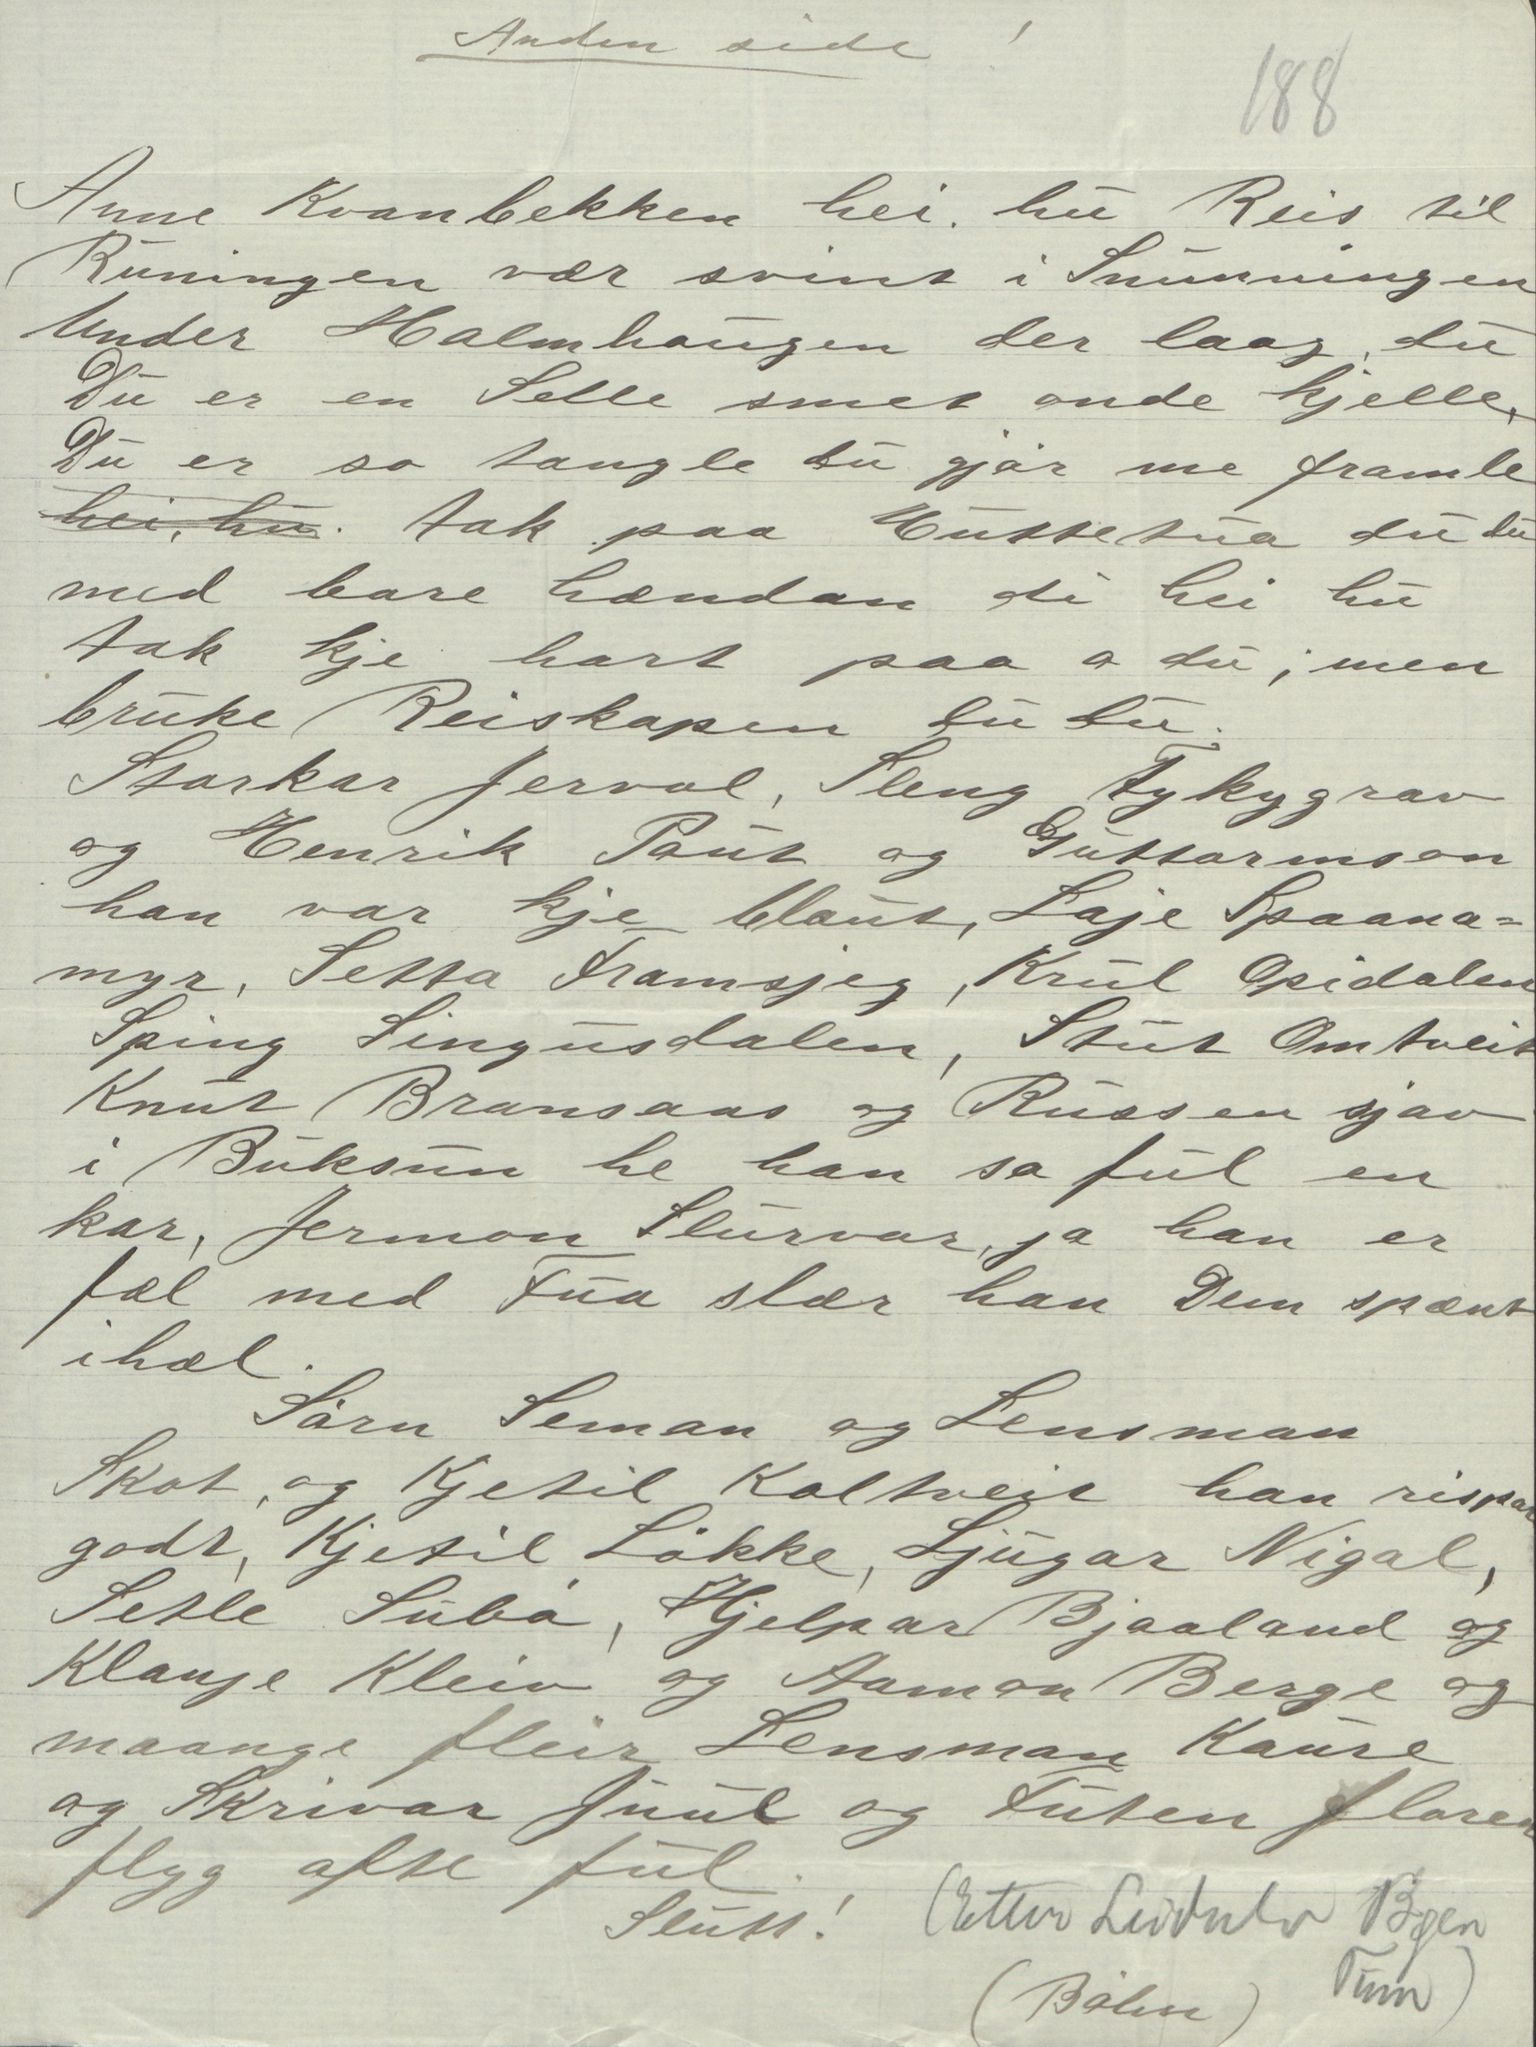 Anden side !
188
Anne Kvanbekken hei. hu Reis til
Runingen vær svint i Snunningen
Under Halmhaugen der laag, du
Du er en Selle smet onde kjelle,
Du er so tangle du gjör me framle
hei, hu. tak paa Huttetua du du
med bare hændan di hei hu
tak kje hart paa a du; men
bruke Reiskapen du du.
Starkar Jerval, Sleng Tykygrav
og Henrik Paut og Guttormson
han var kje blaut, Laje Spaana=
myr, Setta Framsjeg, Krul Opidalen
Sping Lingusdalen, Stut Omtveit
Knut Bransaas og Russen sjav
i Buksun he han sa ful en
kar, Jermon Slurvar, ja han er
fæl med Fua slær han Dem spænt
ihæl.
Sörn Seman og Lensman
Skot, og Kjetil Kaltveit han rispar
godt, Kjetil Lökke, Ljugar Nigal,
Setle Subö, Hjelpar Bjaaland og
Klanje Kleiv og Aamon Berge og
maange fleir Lensman Kaure
og Skrivar Juul og Futen floren
flyg afte ful.
Slutt!
(Etter Leidulv Bøen
Tinn)
(Bölen)